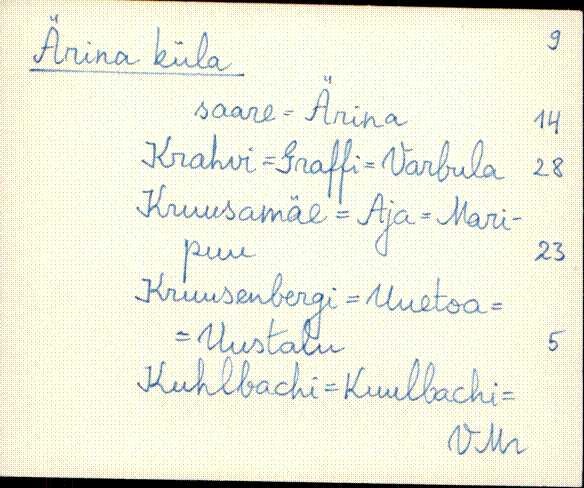 Ärina küla 9
saare = Ärina 14
Krahvi = Graffi = Varbula 28
Kruusamäe = Aja = Mari-
puu 23
Kruusenbergi = Uuetoa =
= Uustalu 5
Kuhlbachi = Kuulbachi =
VMr